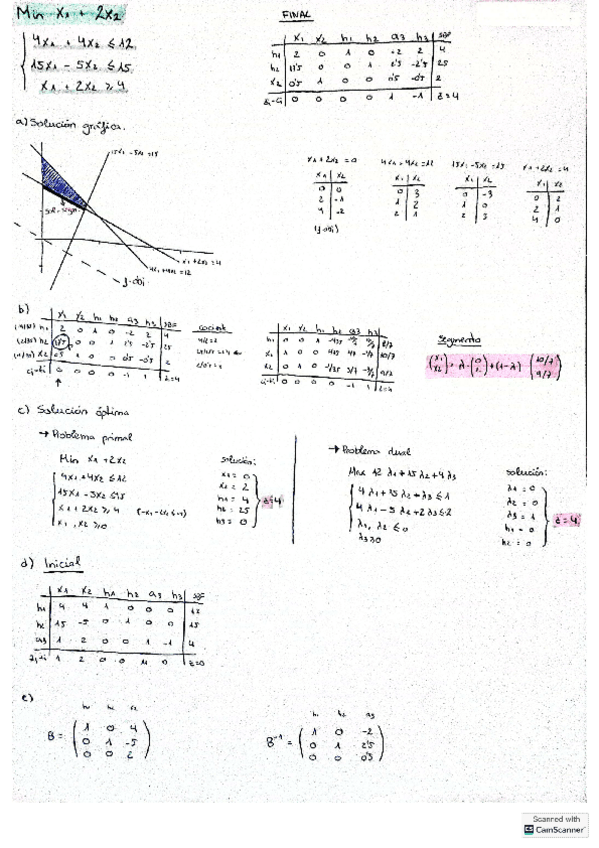 Min x₁ + 2x₂
4x₁ + 4x₂ ≤ 12
15x₁ - 5x₂ ≤ 15
x₁ + 2x₂ ≥ 4
FINAL
x₁ x₂ h₁ h₂ a₃ h₃ SBF
h₁ 2 0 1 0 -2 2 4
h₂ 17'5 0 0 1 2'5 -2'5 25
x₂ 0'5 1 0 0 0'5 -0'5 2
0 0 0 0 1 -1 z=4
a) Solución gráfica.
15x₁ - 5x₂ = 15
x₁ + 2x₂ = 4
4x₁ + 4x₂ = 12
f. obj
x₁ + 2x₂ = 0
x₁ x₂
0 0
2 -1
4 -2
(f. obj)
4x₁ + 4x₂ = 12
x₁ x₂
0 3
1 2
2 1
15x₁ - 5x₂ = 15
x₁ x₂
0 -3
1 0
2 3
x₁ + 2x₂ = 4
x₁ x₂
0 2
2 1
4 0
b)
x₁ x₂ h₁ h₂ a₃ h₃ SBF
h₁ 2 0 1 0 -2 2 4
h₂ 0 0 1 2'5 -2'5 25
x₂ 0'5 1 0 0 0'5 -0'5 2
0 0 0 0 -1 1 z=4
cociente
x₁ x₂ h₁ h₂ a₃ h₃
h₁ 0 0 1
x₁ 1 0 0 10/7
x₂ 0 1 0 9/7
0 0 0 0 -1 1 z=4
Segmento
(x₁ x₂) = λ · (0 2) + (1-λ) (10/7 9/7)
c) Solución óptima
→ Problema primal
Min x₁ + 2x₂
4x₁ + 4x₂ ≤ 12
15x₁ - 5x₂ ≤ 15
x₁ + 2x₂ ≥ 4
x₁, x₂ ≥ 0
solución:
x₁ = 0
x₂ = 2
h₁ = 4
h₂ = 25
h₃ = 0
z=4
→ Problema dual
Max 12 λ₁ + 15 λ₂ + 4 λ₃
4 λ₁ + 15 λ₂ + λ₃ ≤ 1
4 λ₁ - 5 λ₂ + 2 λ₃ ≤ 2
λ₁, λ₂ ≤ 0
λ₃ ≥ 0
solución:
λ₁ = 0
λ₂ = 0
λ₃ = 1
h₁ = 0
h₂ = 0
z = 4
d) Inicial
x₁ x₂ h₁ h₂ a₃ h₃ SBF
h₁ 4 4 1 0 0 0 12
h₂ 15 -5 0 1 0 0 15
a₃ 1 2 0 0 1 -1 4
1 2 0 0 0 z=0
e)
h₁ h₂ x₂
B = (1 0 4
0 1 -5
0 0 2)
h₁ h₂ a₃
B⁻¹ = (1 0 -2
0 1 2'5
0 0 0'5)
Scanned with
CS CamScanner